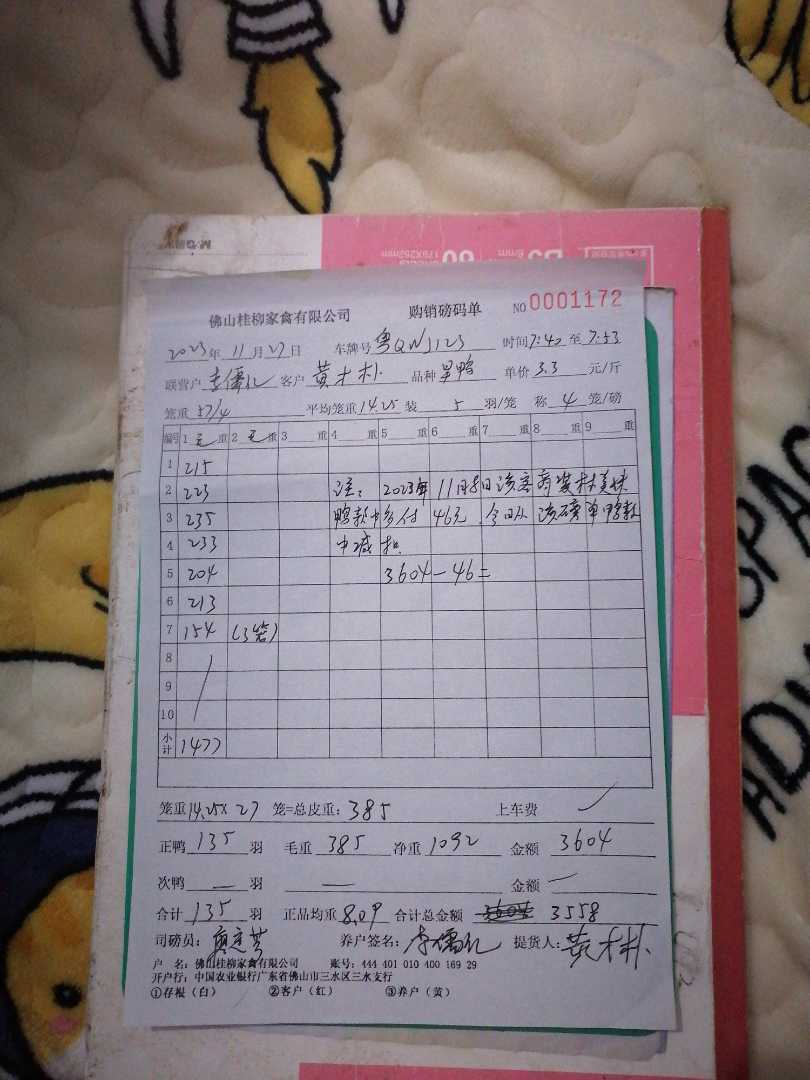 佛山桂柳家禽有限公司 购销磅码单 NO 0001172
2023年11月27日 车牌号 粤QWJ123 时间7:42至7:53
联营户 李儒亿 客户 黄才朴 品种 旱鸭 单价 3.3 元/斤
笼重 57/4 平均笼重 14.25 装 5 羽/笼 称 4 笼/磅
编号 1 毛 重 2 毛 重 3 重 4 重 5 重 6 重 7 重 8 重 9 重
1 215
2 223 注: 2023年11月8日该客商装林美妹
3 235 鸭款中多付46元,今日从该磅单鸭款
4 233 中减扣
5 204 3604-46=
6 213
7 154 (3笼)
8
9
10
小计 1477
笼重14.25×27 笼=总皮重:385 上车费
正鸭 135 羽 毛重 385 净重 1092 金额 3604
次鸭 — 羽 — 金额 —
合计 135 羽 正品均重 8.09 合计总金额 3604 3558
司磅员: 养户签名:李儒亿 提货人:黄才朴
户 名:佛山桂柳家禽有限公司 账号:444 401 010 400 169 29
开户行:中国农业银行广东省佛山市三水区三水支行
①存根(白) ②客户(红) ③养户(黄)
SPACE